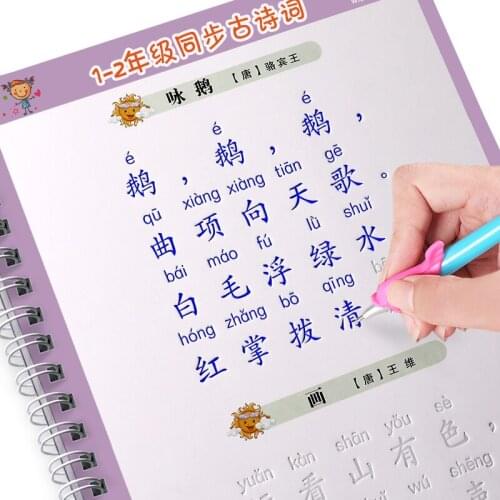 1-2年级同步古诗词
咏 鹅 【唐】骆宾王
é é é
鹅，鹅，鹅，
qū xiàng xiàng tiān gē
曲项向天歌。
bái máo fú lǜ shuǐ
白毛浮绿水
hóng zhǎng bō qīng bō
红掌拨清
画 【唐】王 维
yuǎn kàn shān yǒu sè
看山有色，
wú shēng